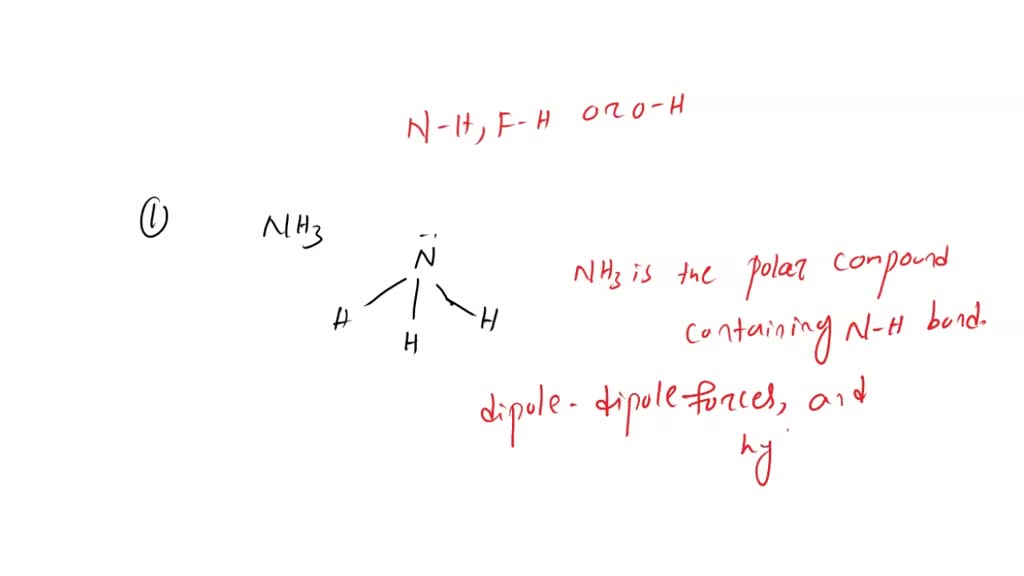 N-H, F-H or O-H
① NH3
N
H H H
NH3 is the polar compound
containing N-H bond.
dipole-dipole forces, and
hy